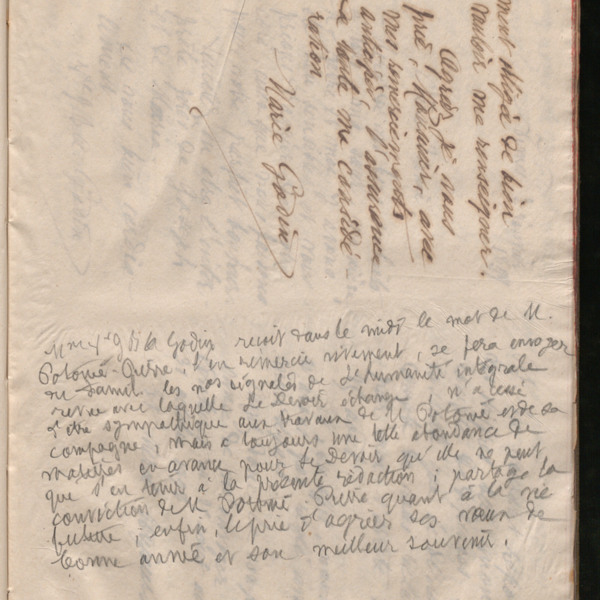 mot obligé de bien
vouloir me renseigner.
Agréez je vous
prie, Monsieur, avec
mes remerciements
anticipés, l'assurance
de toute ma considé-
ration
Marie Godin
Mme Vve Godin reçoit dans le midi le mot de M.
Potonié-Pierre, l'en remercie vivement, se fera envoyer
du Famil. les nos signalés de L'humanité intégrale
revue avec laquelle Le Devoir échange, n'a cessé
d'être sympathique aux travaux de M. Potonié et de sa
compagne, mais a toujours une telle abondance de
matières en avance pour le Devoir qu'elle ne peut
que s'en tenir à la présente rédaction ; partage la
conviction de M. Potonié Pierre quant à la vie
future ; enfin, le prie d'agréer ses vœux de
bonne année et son meilleur souvenir.